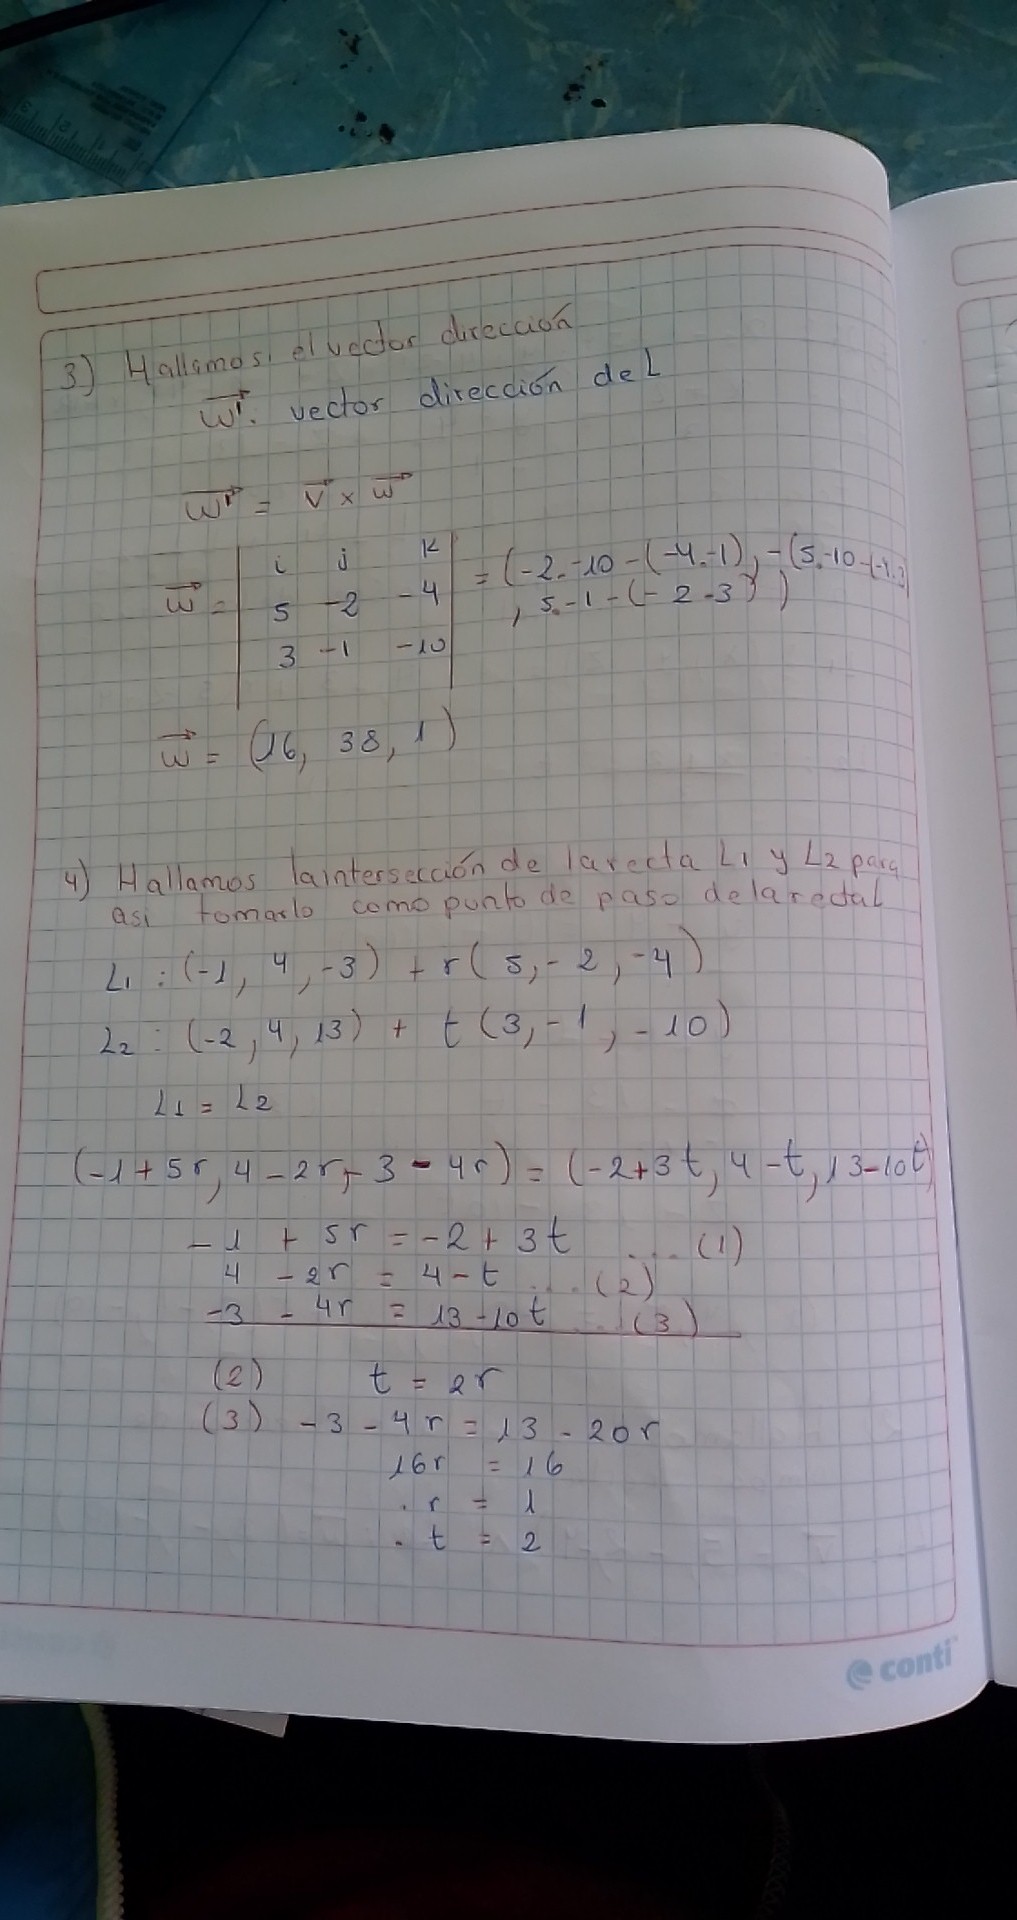 3) Hallamos, el vector dirección
w'. vector dirección de L
w' = v x w
i j k
w = 5 -2 -4 = (-2.-10-(-4.-1), -(5.-10-(-4.3
3 -1 -10 , 5.-1-(-2-3))
w = (16, 38, 1)
4) Hallamos la intersección de la recta L1 y L2 para
asi tomarlo como punto de paso de la recta L
L1 : (-1, 4, -3) + r(5, -2, -4)
L2 : (-2, 4, 13) + t(3, -1, -10)
L1 = L2
(-1+5r, 4-2r, -3-4r) = (-2+3t, 4-t, 13-10t)
-1 + 5r = -2+3t ... (1)
4 - 2r = 4-t ... (2)
-3 - 4r = 13-10t .. (3)
(2) t = 2r
(3) -3-4r = 13-20r
16r = 16
. r = 1
. t = 2
conti